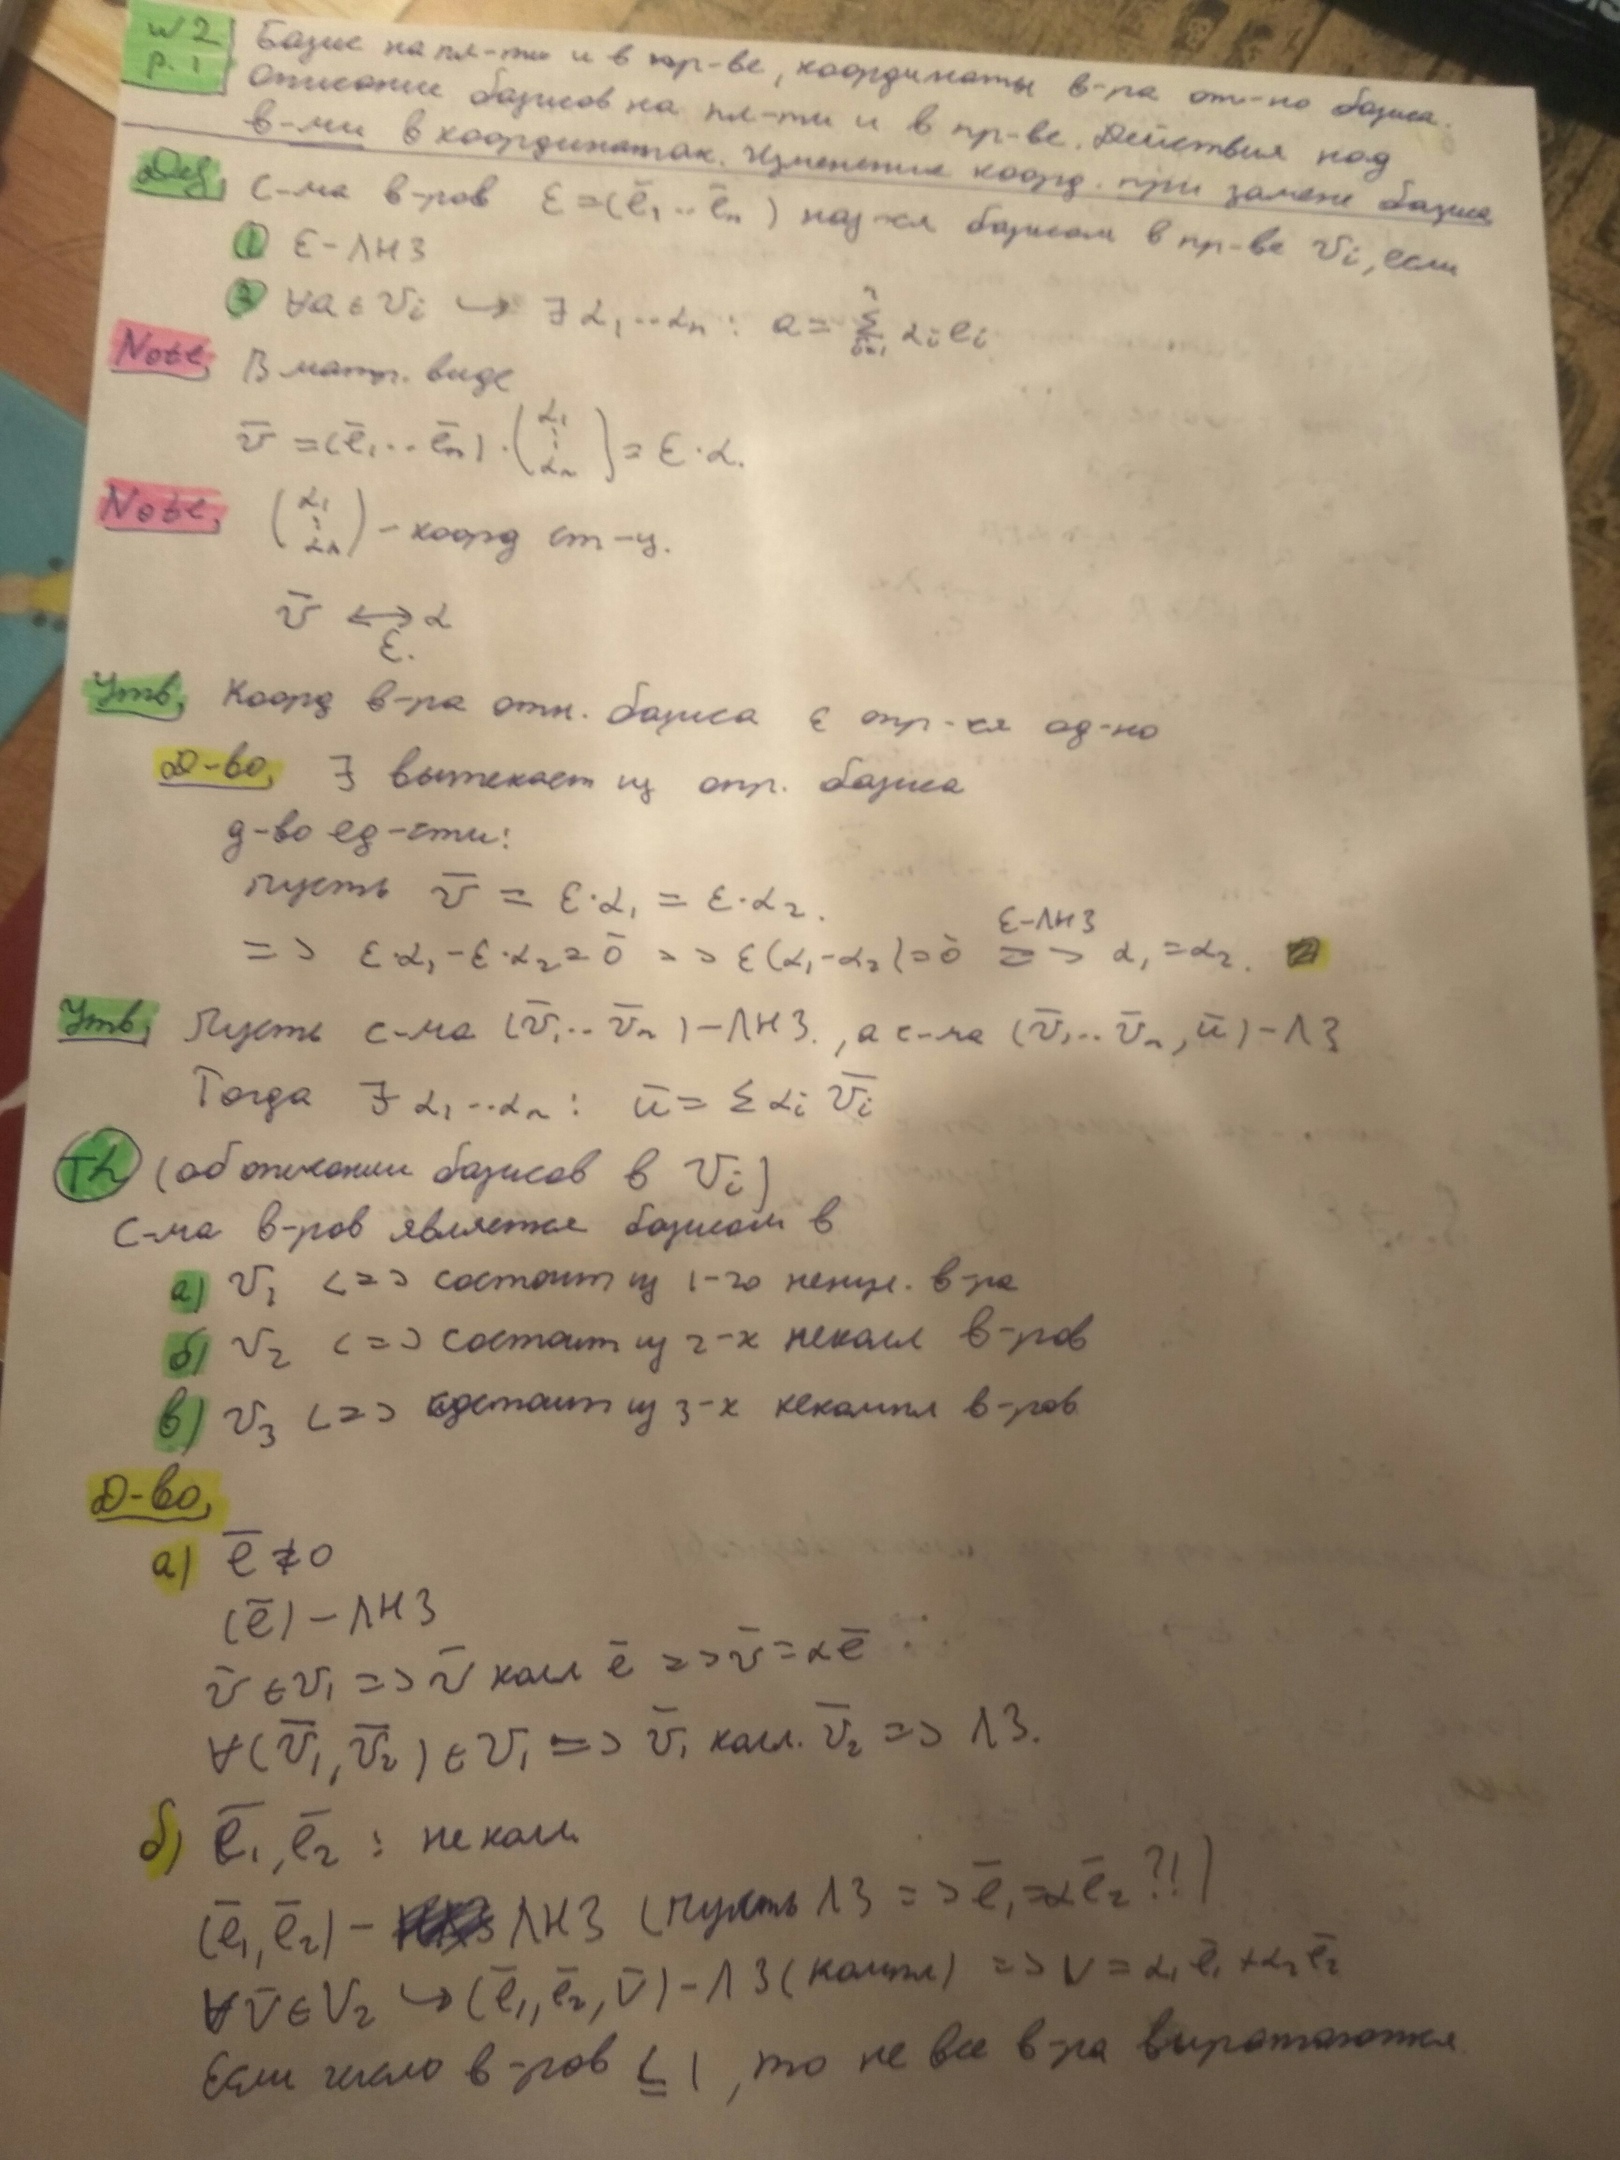 №2 р.1 Базис на пл-ти и в пр-ве, координаты в-ра отн-но базиса.
Описание базисов на пл-ти и в пр-ве. Действия над
в-ми в координатах. Изменение коорд. при замене базиса
Def, С-ма в-ров ℰ=(ē₁..ēₙ) наз-ся базисом в пр-ве Vᵢ, если
① ℰ-ЛНЗ
② ∀a∈Vᵢ ↪ ∃ α₁..αₙ: a = Σⁿᵢ₌₁ αᵢeᵢ
Note, В матр. виде
v̄ = (ē₁..ēₙ)·(α₁ ⋮ αₙ) = ℰ·α.
Note, (α₁ ⋮ αₙ) – коорд ст-ц.
v̄ ↔ α
ℰ.
Утв, Коорд в-ра отн. базиса ℰ опр-ся од-но
Д-во, ∃ вытекает из опр. базиса
д-во ед-сти:
Пусть v̄ = ℰ·α₁ = ℰ·α₂.
=> ℰ·α₁-ℰ·α₂=ō => ℰ(α₁-α₂)=ō =>(ℰ-ЛНЗ) α₁=α₂.
Утв, Пусть с-ма (v̄₁..v̄ₙ)-ЛНЗ., а с-ма (v̄₁..v̄ₙ,ū)-ЛЗ
Тогда ∃ α₁..αₙ: ū = Σ αᵢ v̄ᵢ
Th (об описании базисов в Vᵢ)
С-ма в-ров является базисом в
а) V₁ <=> состоит из 1-го ненул. в-ра
б) V₂ <=> состоит из 2-х некол в-ров
в) V₃ <=> состоит из 3-х некомпл в-ров
Д-во,
а) ē≠0
(ē)-ЛНЗ
v̄∈V₁ => v̄ колл ē => v̄=αē
∀(v̄₁,v̄₂)∈V₁ => v̄₁ колл. v̄₂ => ЛЗ.
б) ē₁,ē₂ : неколл.
(ē₁,ē₂)- ЛНЗ (Пусть ЛЗ => ē₁=αē₂ ?!)
∀v̄∈V₂ ↪ (ē₁,ē₂,v̄)-ЛЗ(компл) => v=α₁ē₁+α₂ē₂
Если число в-ров ≤ 1, то не все в-ра выражаются